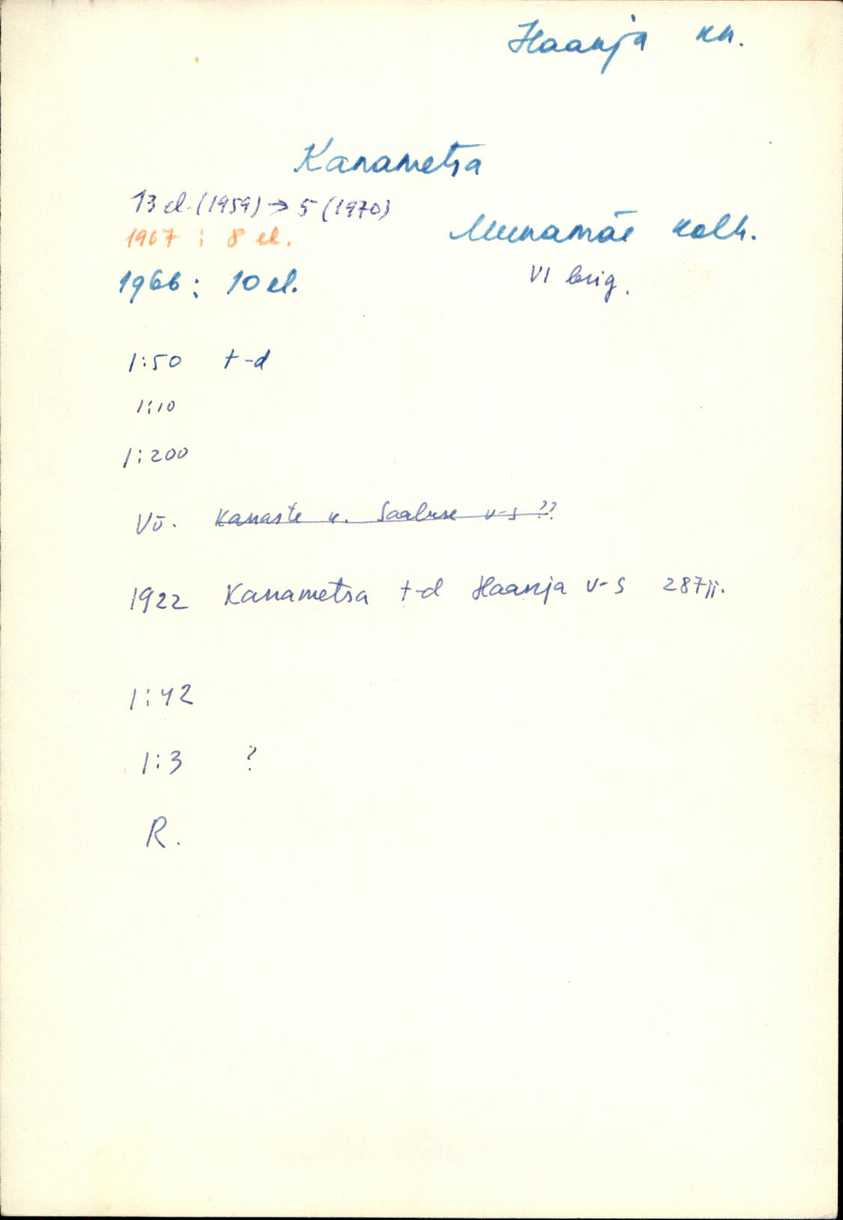 Haanja kn.
Kanametsa
13 el. (1959) → 5 (1970)
1967 : 8 el.
Munamäe kolh.
1966 : 10 el.
VI brig.
1:50 t-d
1:10
1:200
Vö. Kanaste k. Saaluse v-s ??
1922 Kanametsa t-d Haanja v-s 287jj.
1:42
1:3 ?
R.